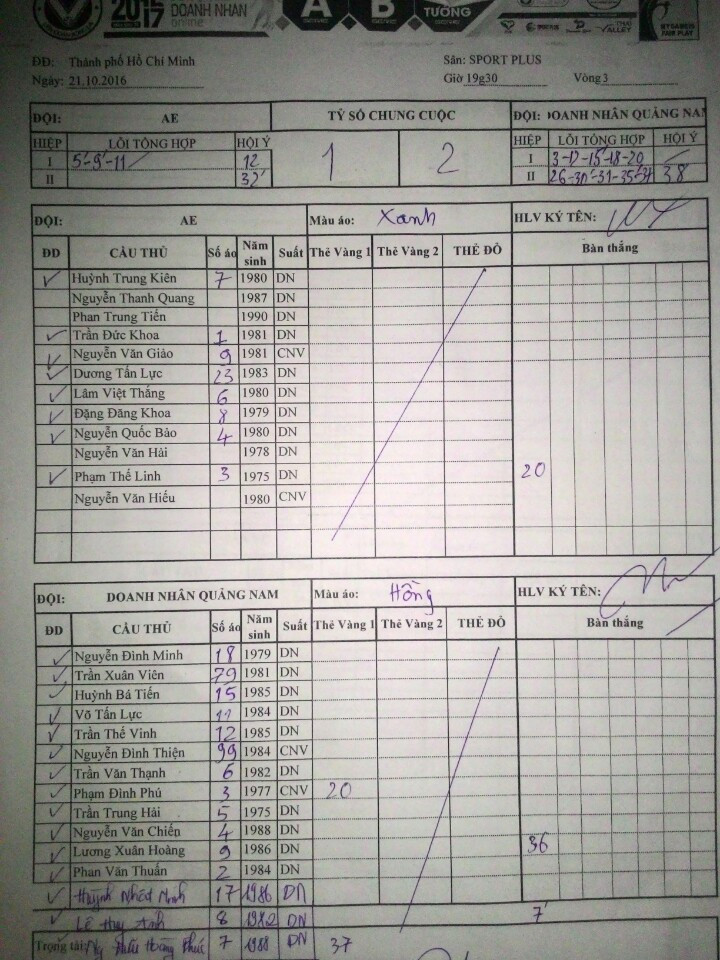 2015 2017 DOANH NHÂN online A B TƯỞNG
ĐĐ: Thành phố Hồ Chí Minh Sân: SPORT PLUS
Ngày: 21.10.2016 Giờ 19g30 Vòng 3
ĐỘI: AE TỶ SỐ CHUNG CUỘC ĐỘI: DOANH NHÂN QUẢNG NAM
HIỆP LỖI TỔNG HỢP HỘI Ý 1 2 HIỆP LỖI TỔNG HỢP HỘI Ý
I 5'-9'-11' 12 I 3-17-15'-18-20
II 32' II 38'
ĐỘI: AE Màu áo: Xanh HLV KÝ TÊN:
ĐD CẦU THỦ Số áo Năm sinh Suất Thẻ Vàng 1 Thẻ Vàng 2 THẺ ĐỎ Bàn thắng
Huỳnh Trung Kiên 7 1980 DN
Nguyễn Thanh Quang 1987 DN
Phan Trung Tiến 1990 DN
Trần Đức Khoa 1 1981 DN
Nguyễn Văn Giảo 9 1981 CNV
Dương Tấn Lực 23 1983 DN
Lâm Việt Thắng 6 1980 DN
Đặng Đăng Khoa 8 1979 DN
Nguyễn Quốc Bảo 4 1980 DN
Nguyễn Văn Hải 1978 DN
Phạm Thế Linh 3 1975 DN 20
Nguyễn Văn Hiếu 1980 CNV
ĐỘI: DOANH NHÂN QUẢNG NAM Màu áo: Hồng HLV KÝ TÊN:
ĐD CẦU THỦ Số áo Năm sinh Suất Thẻ Vàng 1 Thẻ Vàng 2 THẺ ĐỎ Bàn thắng
Nguyễn Đình Minh 18 1979 DN
Trần Xuân Viên 79 1981 DN
Huỳnh Bá Tiến 15 1985 DN
Võ Tấn Lực 11 1984 DN
Trần Thế Vinh 12 1985 DN
Nguyễn Đình Thiện 99 1984 CNV
Trần Văn Thạnh 6 1982 DN
Phạm Đình Phú 3 1977 CNV 20
Trần Trung Hải 5 1975 DN
Nguyễn Văn Chiến 4 1988 DN
Lương Xuân Hoàng 9 1986 DN 36
Phan Văn Thuấn 2 1984 DN
Huỳnh Minh 17 1986 DN
Lê Huy Anh 8 DN 7'
Trọng tài: Hoàng Phúc 7 1988 DN 37